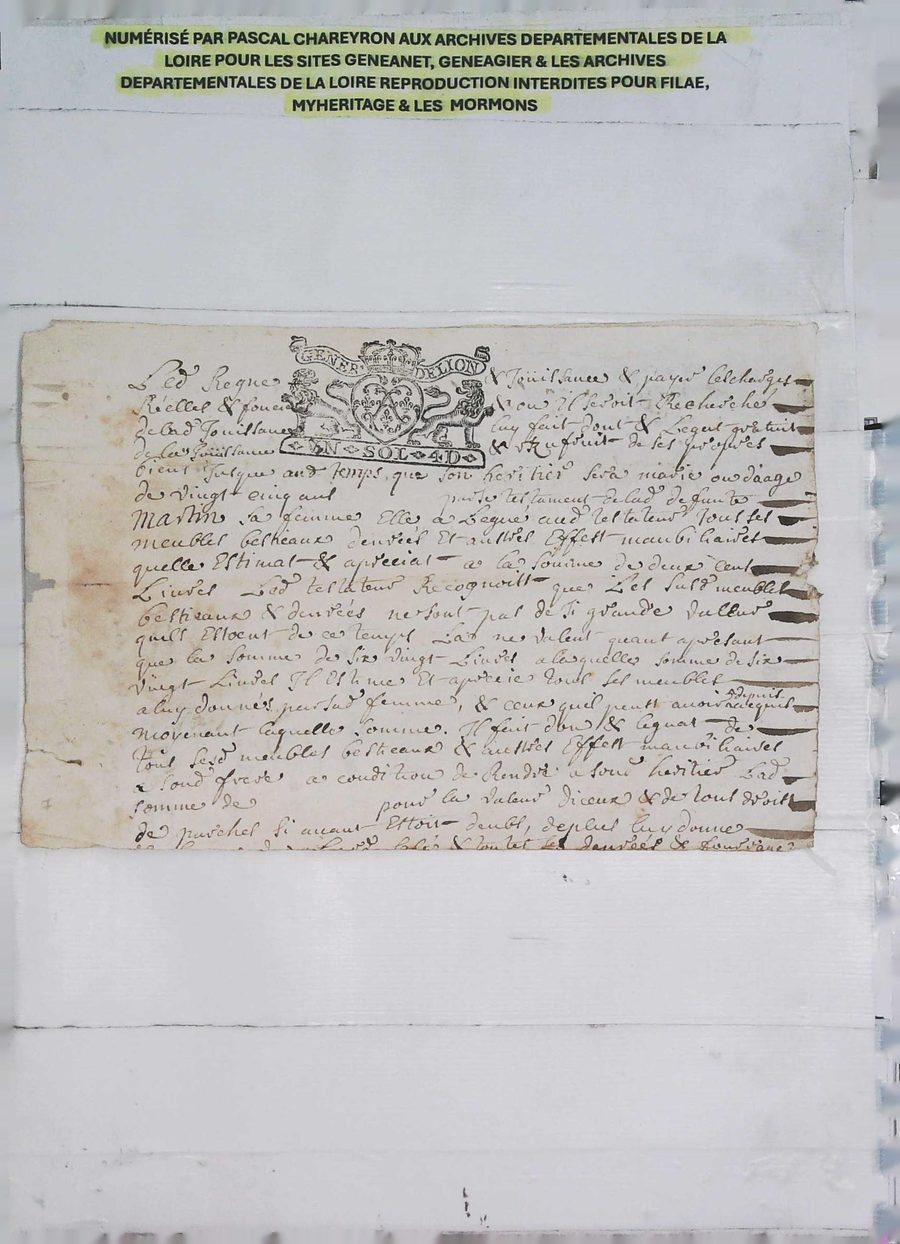 NUMÉRISÉ PAR PASCAL CHAREYRON AUX ARCHIVES DEPARTEMENTALES DE LA
LOIRE POUR LES SITES GENEANET, GENEAGIER & LES ARCHIVES
DEPARTEMENTALES DE LA LOIRE REPRODUCTION INTERDITES POUR FILAE,
MYHERITAGE & LES MORMONS
GENER DELION
VN SOL 4D
Led Regne & Jouissance & payer les charges
Réelles & fonci & ou Il seroit Recherche
de lad Jouissance luy fait dont & Legat gratuit
de la Jouissance & Usufruit de ses propres
biens Jusque aud temps que son heritier sera marie ou daage
de vingt cinq ans par le testament de lad defunte
Martin sa femme Elle a Legué aud testateur tous ses
meubles bestieaux denrées Et autres Effest maubiliaires
quelle Estimat & apreciat a la somme de deux cent
Livres Led testateur Recognoitt que Les susd meubles
bestieaux & denrées ne sont pas de si grande valleur
quils Estoent de ce temps La ne valent quant apresant
que la somme de six vingt Livres a laquelle somme de six
vingt Livres Il Estime Et aprecie tous ses meubles
a luy donnés par sad femme, & ceux quil peust avoir depuis acquis
moyenant laquelle somme. Il fait don & legnat de
tous sesd meubles bestieaux & autres Effest maubiliaires
a sond frere a condition de Rendre a sond heritier Lad
somme de pour la valeur diceux & de tout droitt
de puis luy donne
denrées &